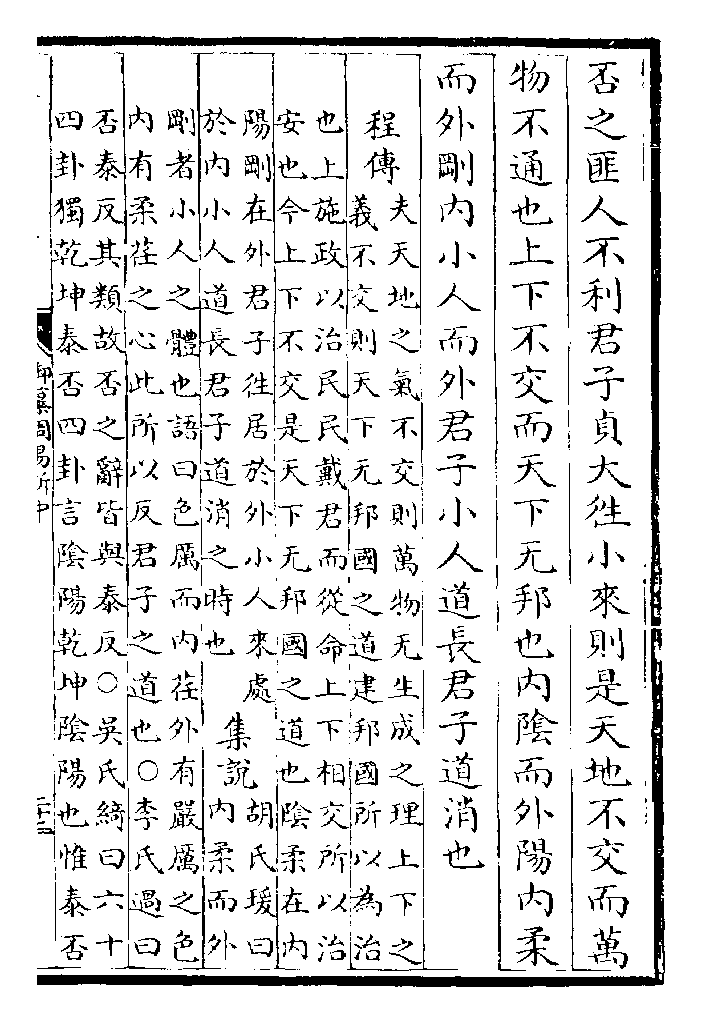 否之匪人不利君子貞大徃小來則是天地不交而萬
物不通也上下不交而天下无邦也内陰而外陽内柔
而外剛内小人而外君子小人道長君子道消也
程傳
夫天地之氣不交則萬物无生成之理上下之
義不交則天下无邦國之道建邦國所以為治
也上施政以治民民戴君而從命上下相交所以治
安也今上下不交是天下无邦國之道也陰柔在内
陽剛在外君子徃居於外小人來處
於内小人道長君子道消之時也
集説
胡氏瑗曰
内柔而外
剛者小人之體也語曰色厲而内荏外有嚴厲之色
内有柔荏之心此所以反君子之道也○李氏過曰
否泰反其類故否之辭皆與泰反○吳氏綺曰六十
四卦獨乾坤泰否四卦言陰陽乾坤陰陽也惟泰否
御纂周易折中